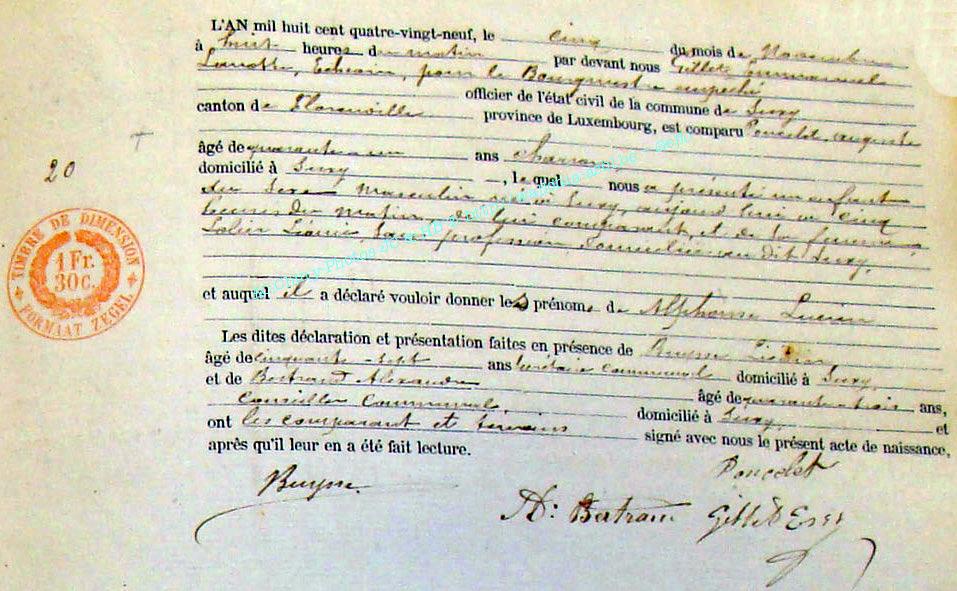 L'AN mil huit cent quatre-vingt-neuf, le cinq du mois de Novembre
à huit heures du matin par devant nous Gillet, Emmanuel
Echevin, pour le Bourgmestre empêché
officier de l'état civil de la commune de Suxy
canton de Florenville province de Luxembourg, est comparu Poncelet, auguste
20
âgé de quarante-un ans charron,
domicilié à Suxy, lequel nous a présenté un enfant
du sexe masculin né à Suxy, aujourd'hui à cinq
heures du matin, de lui comparant et de sa femme
profession, domiciliée au dit Suxy,
et auquel il a déclaré vouloir donner les prénoms de Alphonse Lucien
Les dites déclaration et présentation faites en présence de Buysse
âgé de cinquante-sept ans secrétaire communal domicilié à Suxy,
et de Bertrand Alexandre âgé de quarante-trois ans,
Conseiller Communal, domicilié à Suxy, et
ont les comparant et témoins signé avec nous le présent acte de naissance,
après qu'il leur en a été fait lecture.
Poncelet
Buysse
A: Bertrand Gillet
TIMBRE DE DIMENSION
1 Fr.
30c.
FORMAAT ZEGEL